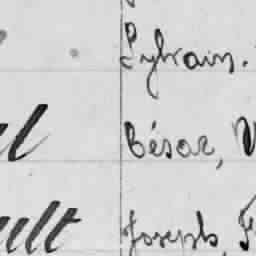 Sylvain.
l César, V
ult Joseph, F